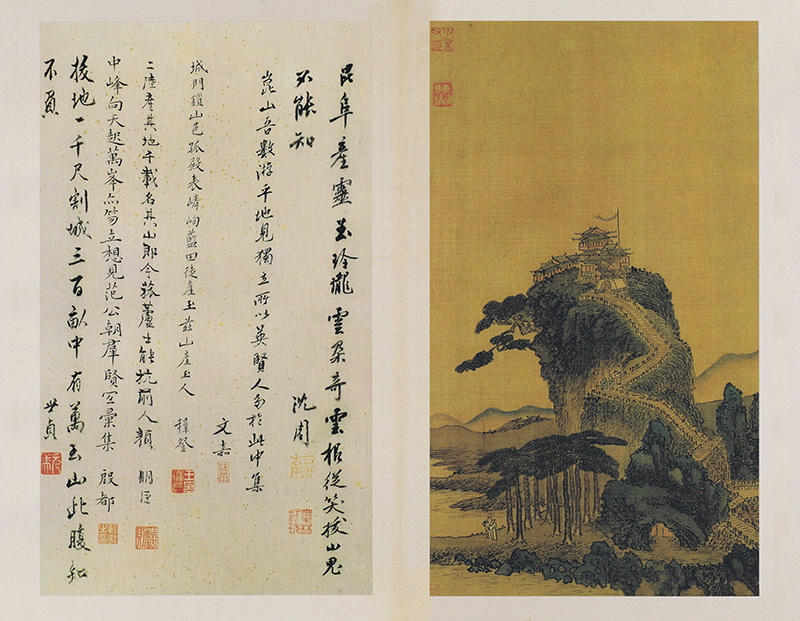 昆阜產靈玉玲瓏雲朵奇雲根從笑拔山鬼
不能知 沈周
崑山吾數游平地見獨立所以英賢人多於此中集
文嘉
城門鎖山色孤殿表嶙峋藍田徒產玉茲山產玉人 穉登
二陸產其地千載名其山即今菰蘆士能抗前人顏 明臣
中峰向天起萬峯亦笏立想見范公朝羣賢彙集 殷都
拔地一千尺割城三百畝中有萬玉山此腹知
不負 世貞